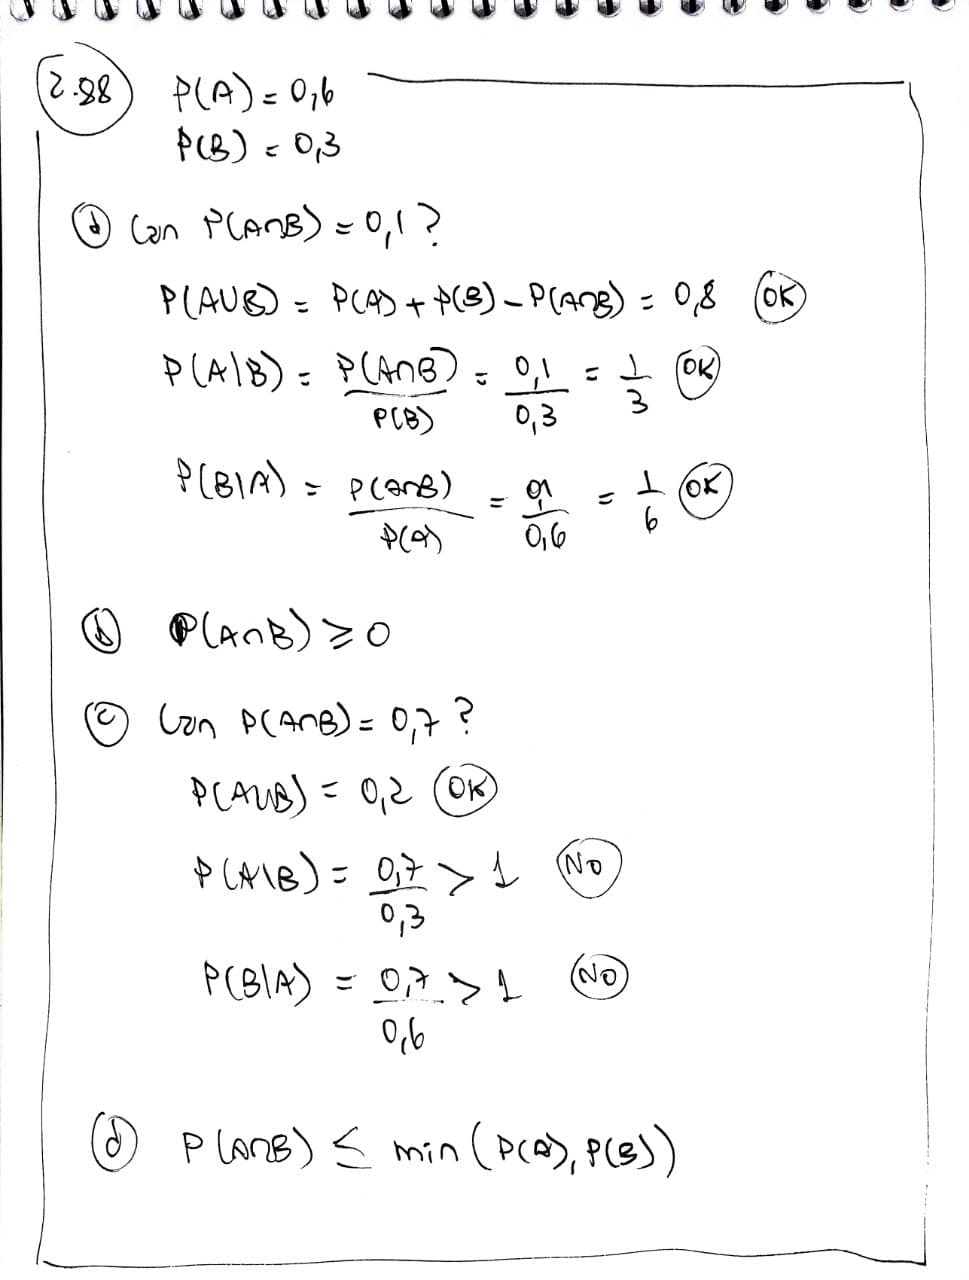 2.88 P(A) = 0,6
P(B) = 0,3
a Can P(A∩B) = 0,1 ?
P(A∪B) = P(A) + P(B) - P(A∩B) = 0,8 OK
P(A|B) = P(A∩B)/P(B) = 0,1/0,3 = 1/3 OK
P(B|A) = P(A∩B)/P(A) = 0,1/0,6 = 1/6 OK
b P(A∩B) ≥ 0
c Can P(A∩B) = 0,7 ?
P(A∪B) = 0,2 OK
P(A|B) = 0,7/0,3 > 1 NO
P(B|A) = 0,7/0,6 > 1 NO
d P(A∩B) ≤ min(P(A), P(B))